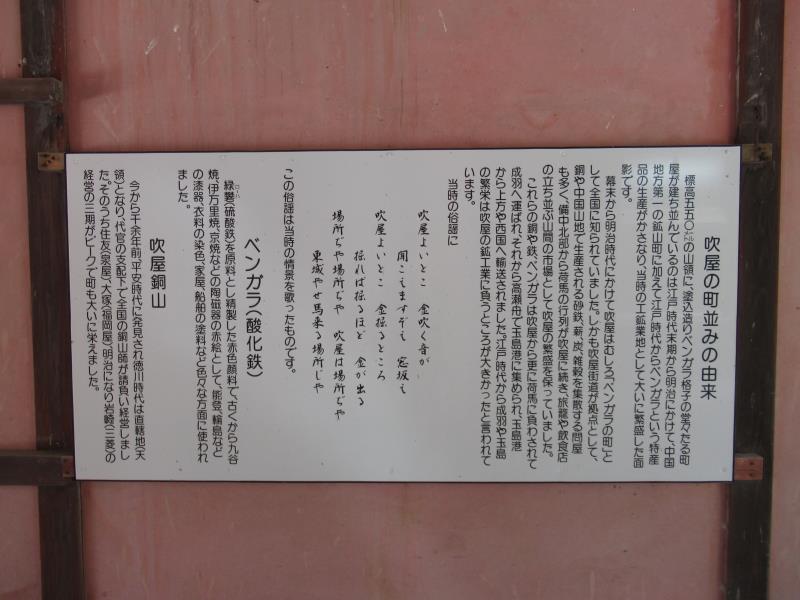 吹屋の町並みの由来
標高五五〇㍍の山嶺に、塗込造りベンガラ格子の堂々たる町
屋が建ち並んでいるのは江戸時代末期から明治にかけて、中国
地方第一の鉱山町に加えて江戸時代からベンガラという特産
品の生産がかさなり、当時の工鉱業地として大いに繁盛した面
影です。
幕末から明治時代にかけて吹屋はむしろ「ベンガラの町」と
して全国に知られていました。しかも吹屋街道が拠点として、
銅や中国山地で生産される砂鉄、薪、炭、雑穀を集散する問屋
も多く、備中北部から荷馬の行列が吹屋に続き、旅籠や飲食店
の立ち並ぶ山間の市場として吹屋の繁盛を保っていました。
これらの銅や鉄、ベンガラは吹屋から更に荷馬に負わされて
成羽へ運ばれ、それから高瀬舟で玉島港に集められ、玉島港
から上方や西国へ輸送されました。江戸時代から成羽や玉島
の繁栄は吹屋の鉱工業に負うところが大きかったと言われて
います。
当時の俗謡に
吹屋よいとこ 金吹く音が
聞こえますぞえ 窓坂え
吹屋よいとこ 金掘るところ
掘れば掘るほど 金が出る
場所ぢや場所ぢや 吹屋は場所ぢや
東城やせ馬来る場所ぢや
この俗謡は当時の情景を歌ったものです。
ベンガラ(酸化鉄)
緑礬(ロハ)(硫酸鉄)を原料とし精製した赤色顔料で、古くから九谷
焼、伊万里焼、京焼などの陶磁器の赤絵として、能登、輪島など
の漆器、衣料の染色、家屋、船舶の塗料など色々な方面に使われ
ました。
吹屋銅山
今から千余年前、平安時代に発見され徳川時代は直轄地(天
領)となり、代官の支配下で全国の銅山師が請負い経営しまし
た。そのうち住友(泉屋)、大塚(福岡屋)、明治になり岩崎(三菱)の
経営の三期がピークで町も大いに栄えました。